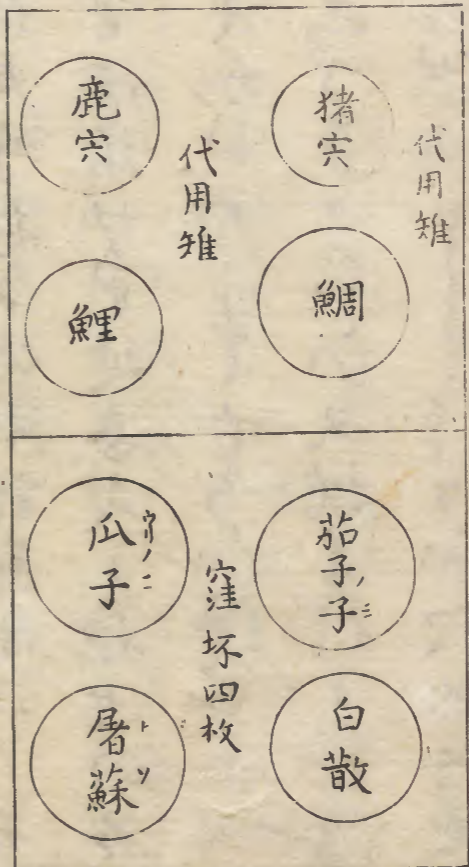 代用雉
猪宍
鯛
代用雉
鹿宍
鯉
茄子ノ子ミ
白散
窪坏四枚
瓜子
屠蘇トソ